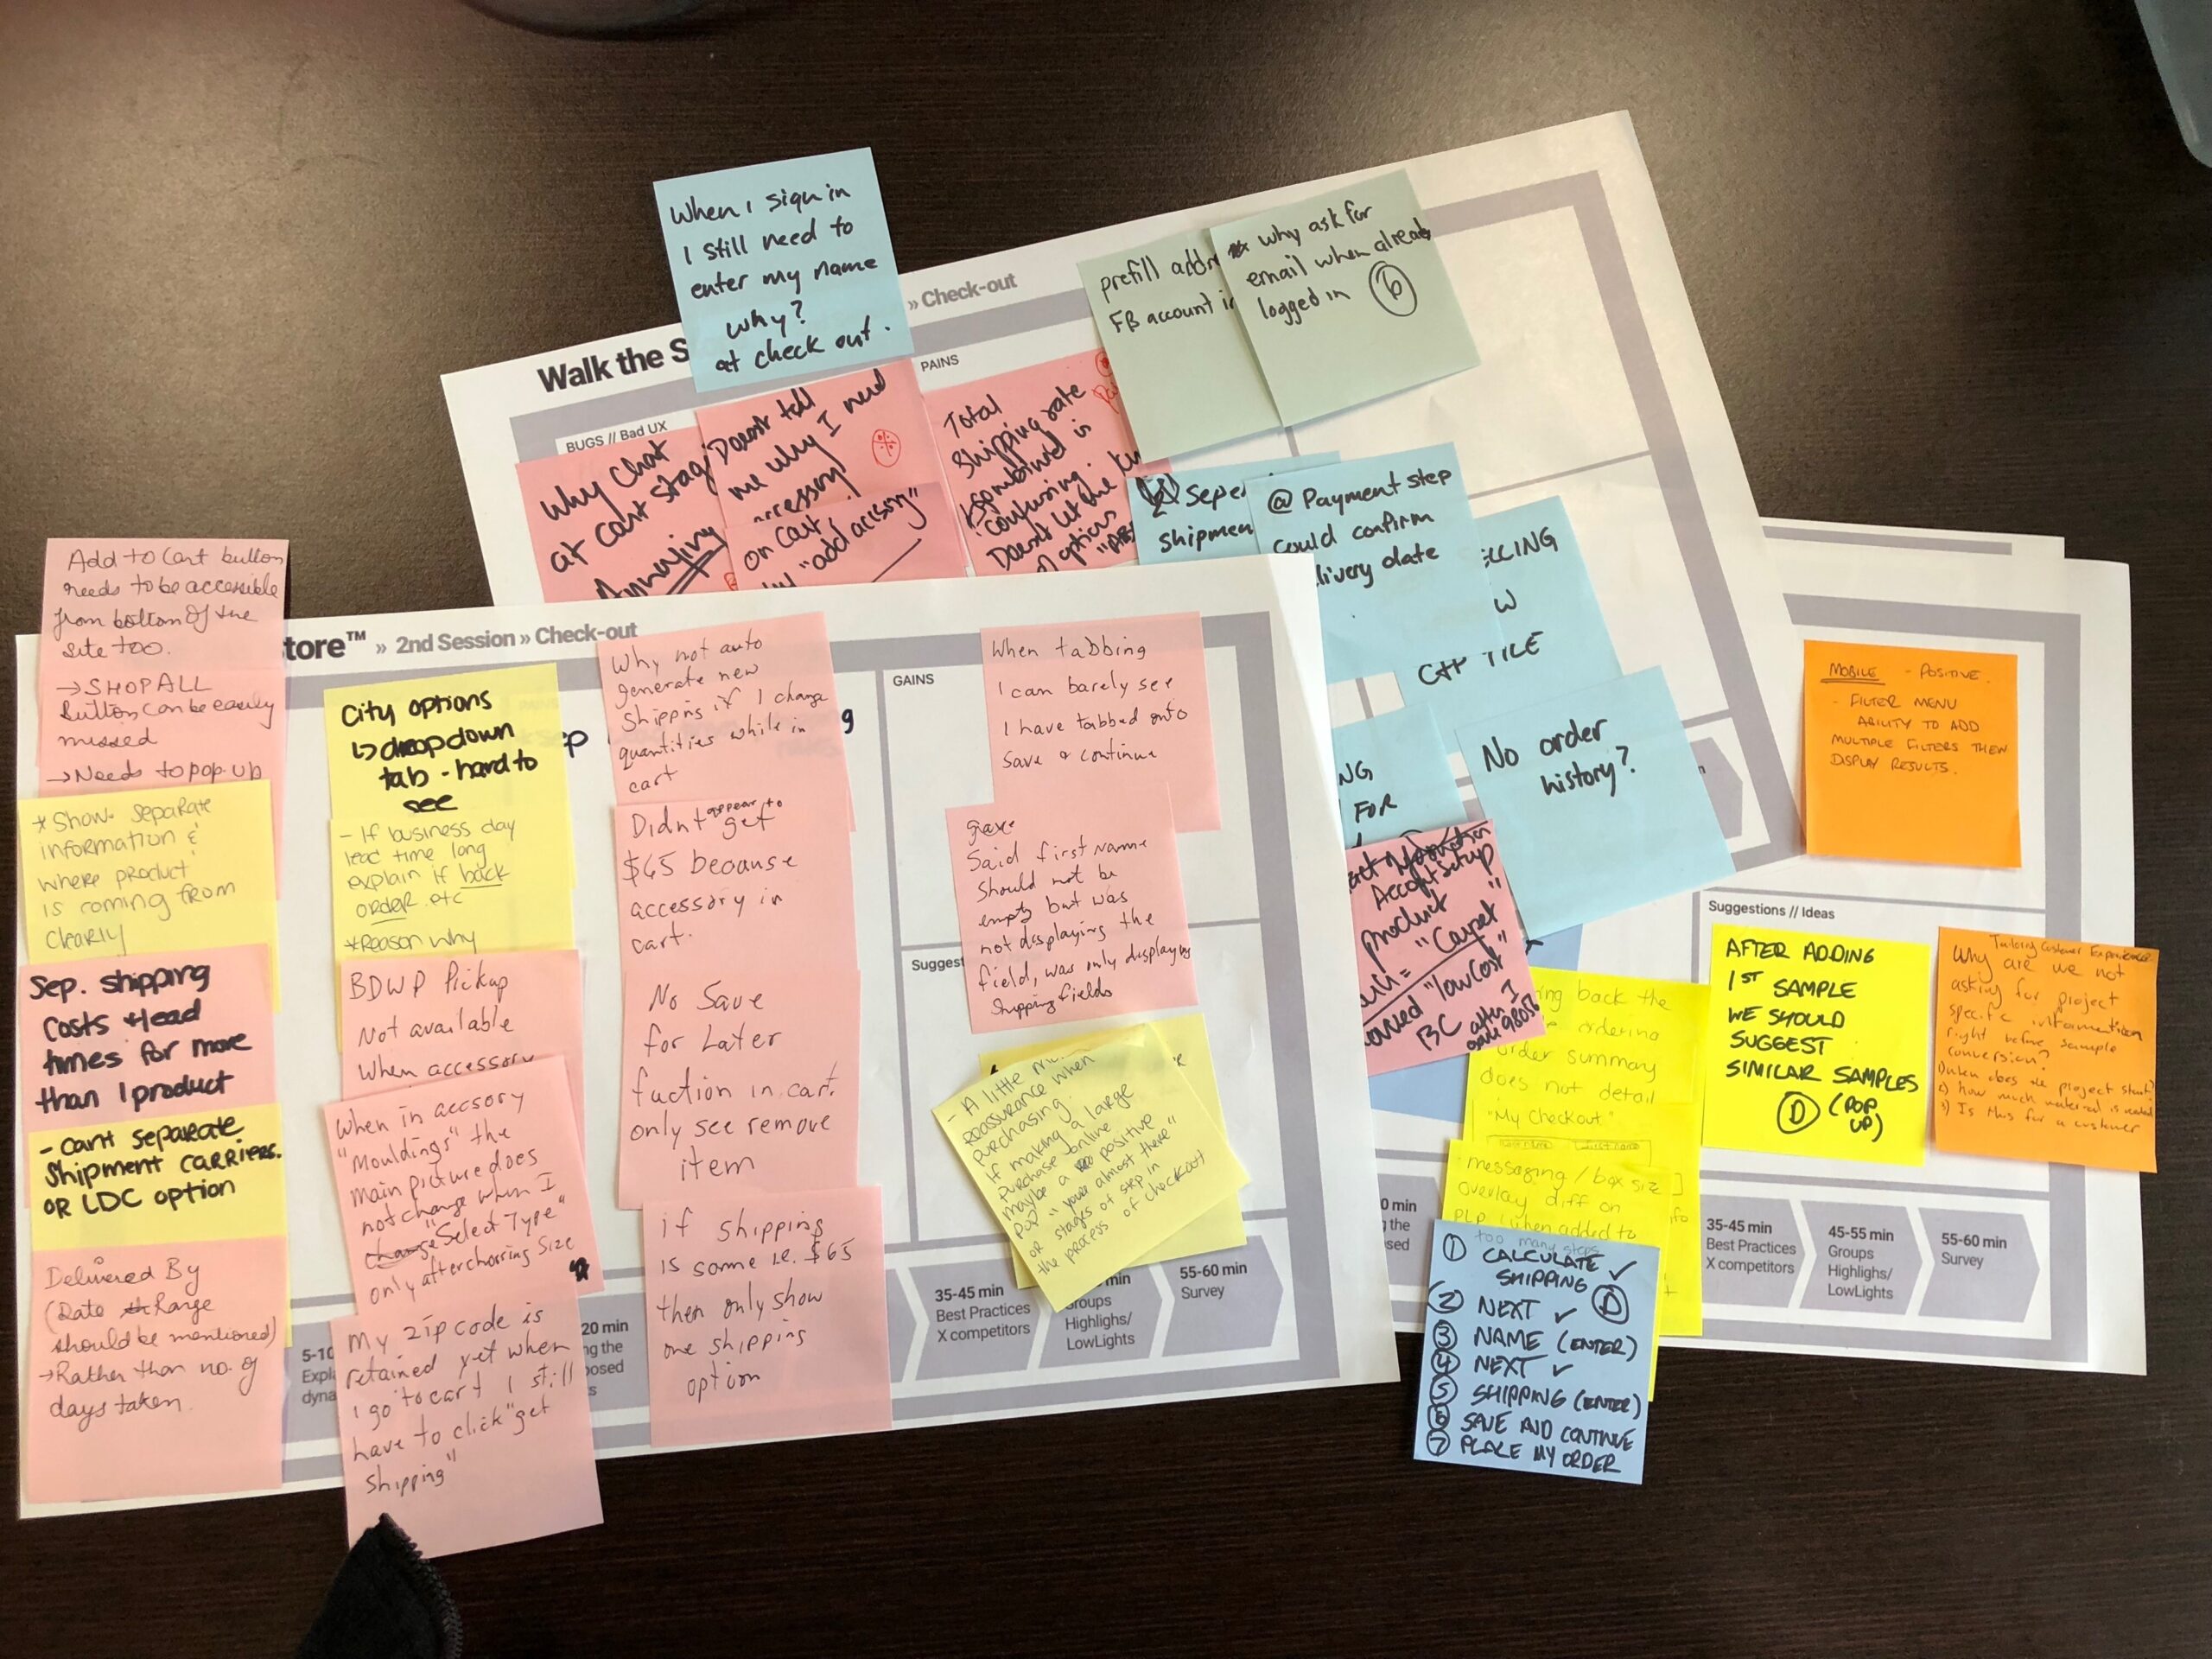 When I sign in
I still need to
enter my name
why?
at check out.
» Check-out
Walk the S
prefill addr
FB account in
why ask for
email when already
logged in
6
PAINS
BUGS // Bad UX
Why Chat
at cart stag
Annoying
Doesn't tell
me why I need
on cart,
"add accisory"
Total
Shipping rate
combined is
confusing.
Doesn't let me
options
Seper
shipmen
@ Payment step
could confirm
livery date
ELLING
W
TILE
No order
history?
NG
FOR
Accept Setup
product
= "Carpet"
"low cost"
BC after I
98056
Add to Cart button
needs to be accessible
from bottom of the
site too.
→ SHOP ALL
Button can be easily
missed
→ Needs to pop-up
* Show separate
information &
where product
is coming from
clearly
Sep. shipping
costs + lead
times for more
than 1 product
- Cant separate
Shipment carriers.
OR LDC option
Delivered By
(Date Range
should be mentioned)
→ Rather than no. of
days taken.
tore™ » 2nd Session » Check-out
City options
↳ dropdown
tab - hard to
see
- If business day
lead time long
explain if back
order etc
* Reason why
BDWP Pickup
Not available
When accessory
When in accsory
"Mouldings" the
main picture does
not change when I
"Select Type"
only after choosing size
My zip code is
retained yet when
I go to cart I still
have to click "get
shipping"
Why not auto
generate new
Shipping if I change
quantities while in
cart
Didnt appear to get
$65 because
accessory in
cart.
No Save
for Later
fuction in cart.
only see remove
item
if shipping
is same i.e. $65
then only show
one shipping
option
GAINS
Suggest
When tabbing
I can barely see
I have tabbed onto
Save & continue
Said first name
should not be
empty but was
not displaying the
field, was only displaying
Shipping fields
- A little
Reassurance when
purchasing.
If making a large
purchase online
maybe a positive
pop "your almost there"
or stages of step in
the process of checkout
5-10
Expl
dyna
20 min
ng the
posed
s
35-45 min
Best Practices
X competitors
min
Groups
Highlighs/
LowLights
55-60 min
Survey
MOBILE - POSITIVE.
- FILTER MENU
ABILITY TO ADD
MULTIPLE FILTERS THEN
DISPLAY RESULTS.
Suggestions // Ideas
AFTER ADDING
1ST SAMPLE
WE SHOULD
SUGGEST
SIMILAR SAMPLES
D (POP UP)
Tailoring Customer Experience
Why are we not
asking for project
specific information
right before sample
conversion?
1) When does the project start?
2) How much material is needed
3) Is this for a customer
ing back the
ordering
order summary
does not detail
"My Checkout"
messaging / box size
overlay diff on
PLP when added to
too many steps
1 CALCULATE ✓
SHIPPING D
2 NEXT ✓
3 NAME (ENTER)
4 NEXT ✓
5 SHIPPING (ENTER)
6 SAVE AND CONTINUE
7 PLACE MY ORDER
0 min
the
sed
35-45 min
Best Practices
X competitors
45-55 min
Groups
Highlighs/
LowLights
55-60 min
Survey